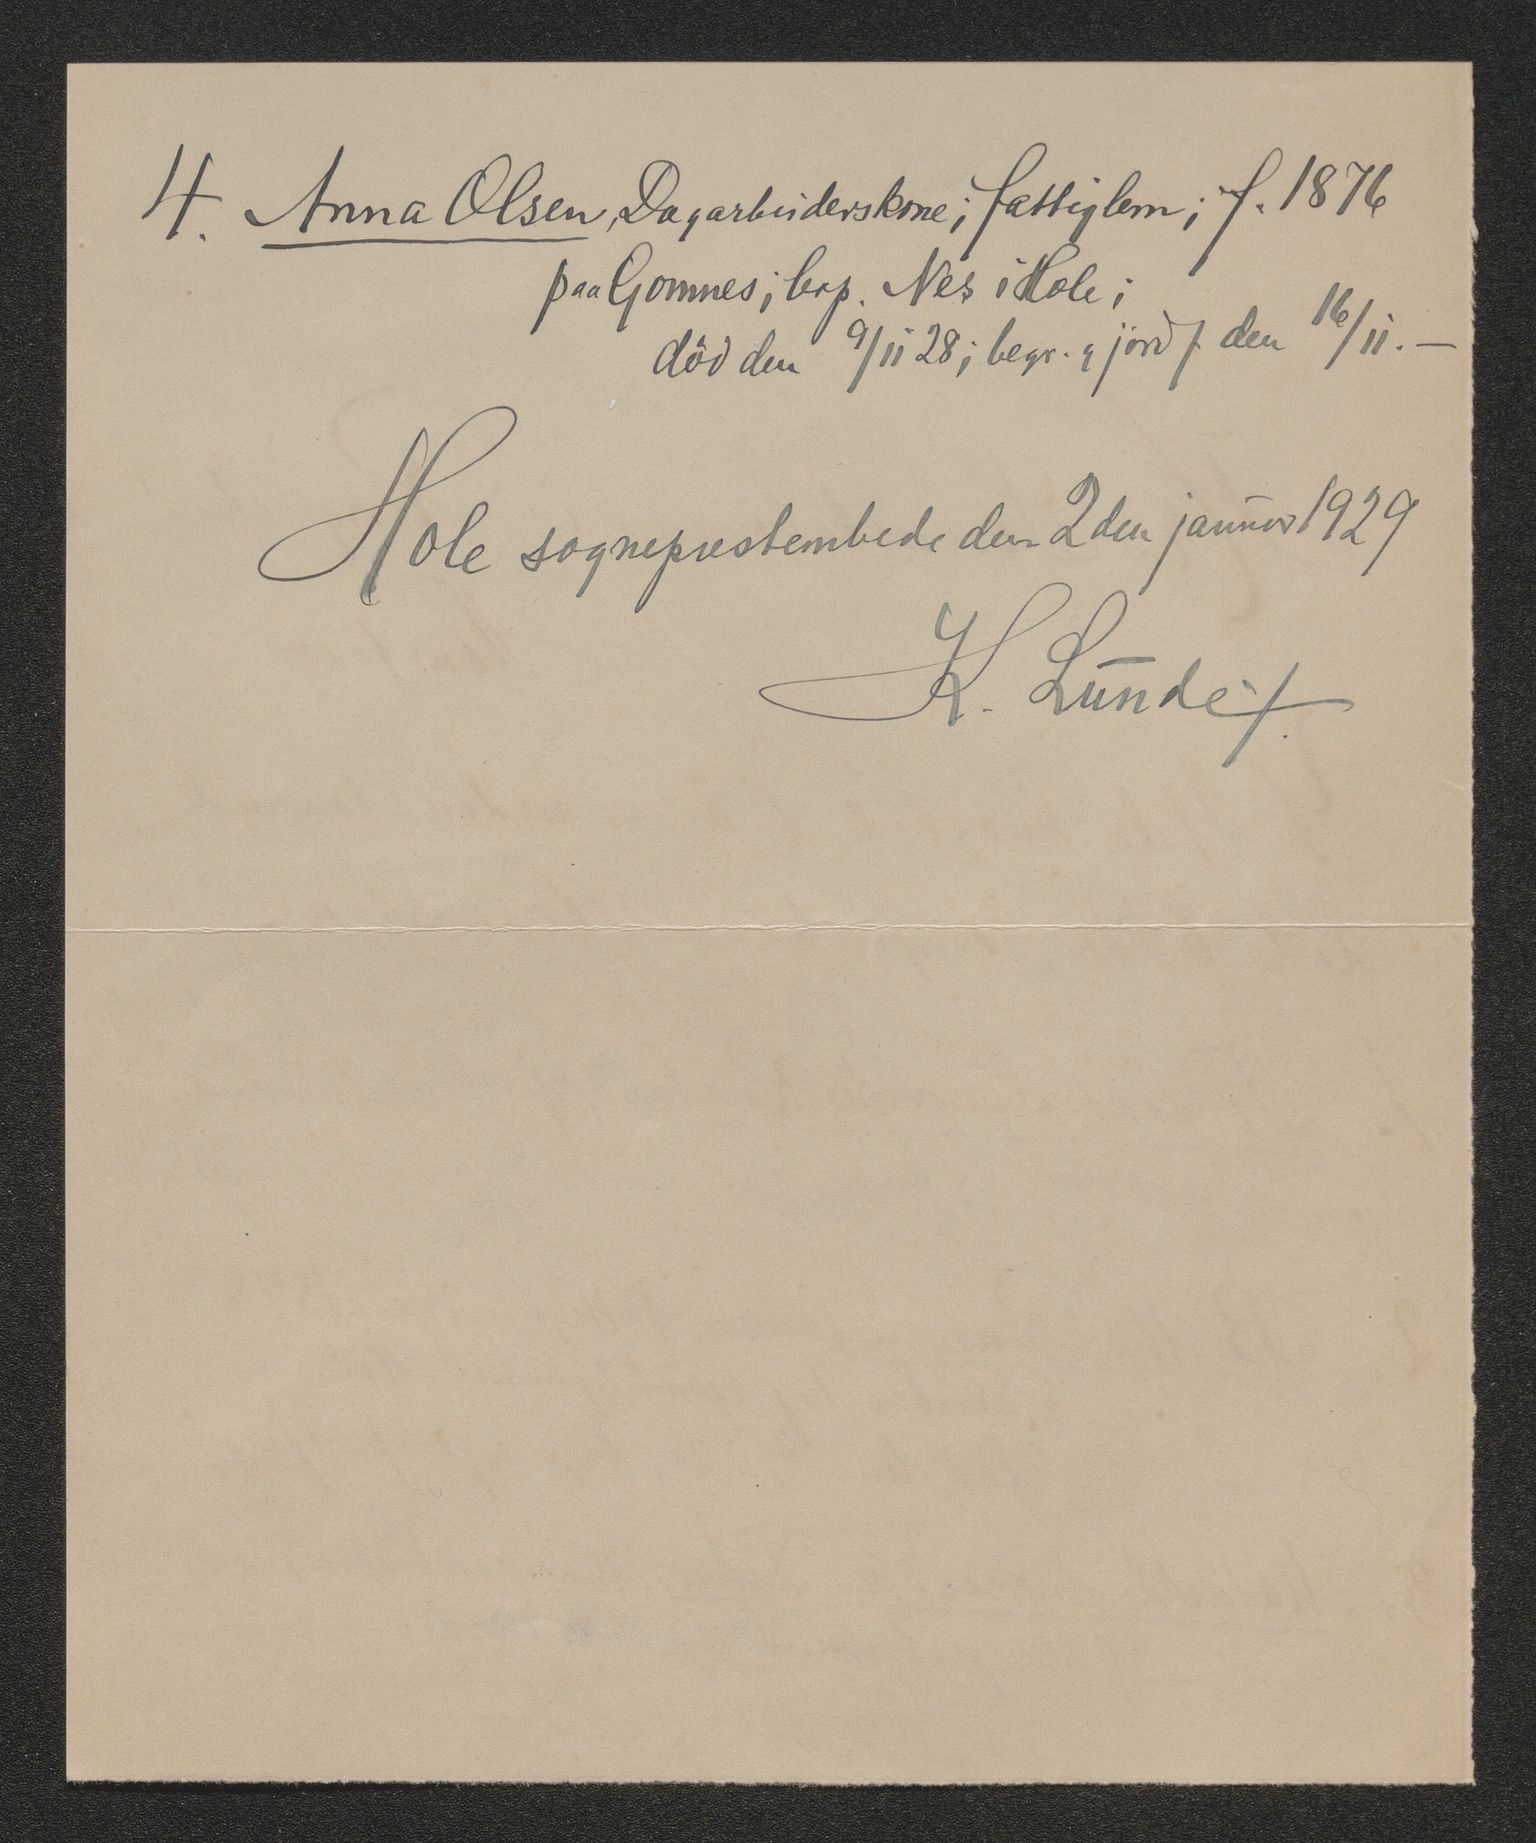 4. Anna Olsen, Dagarbeiderskone; fattiglem; f. 1876
paa Gomnes; bop. Nes i Hole;
død den 9/11 28; begr. & jordf. den 16/11. —
Hole sogneprestembede den 2den januar 1929
K. Lunde